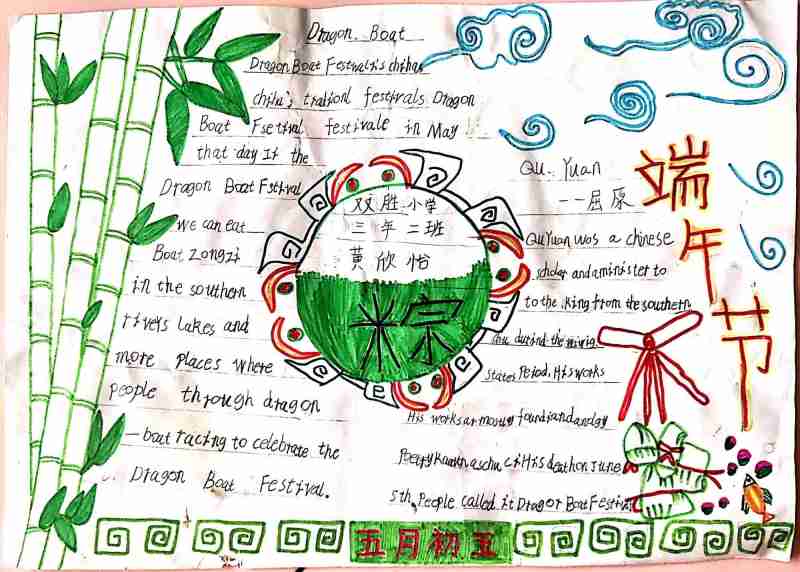 Dragon Boat
Dragon Boat Festival is chihas
chiha's tralionl festivals Dragon
Boat Fsetival festivale in May
that day If the
Dragon Boat Fstival
we can eat
Boat Zongzi
in the southern
rivers lakes and
more places where
people through dragon
-boat racing to celebrate the
Dragon Boat Festival.
双胜小学
三年二班
黄欣怡
粽
Qu Yuan
--屈原
Qu Yuan was a chinese
scholar and a minister to
to the king from the southern
chu during the
states Peiod. His works
His works ar mostly found in and
Poetry His death on June
5th. People called it Dragor Boat Festival
端午节
五月初五